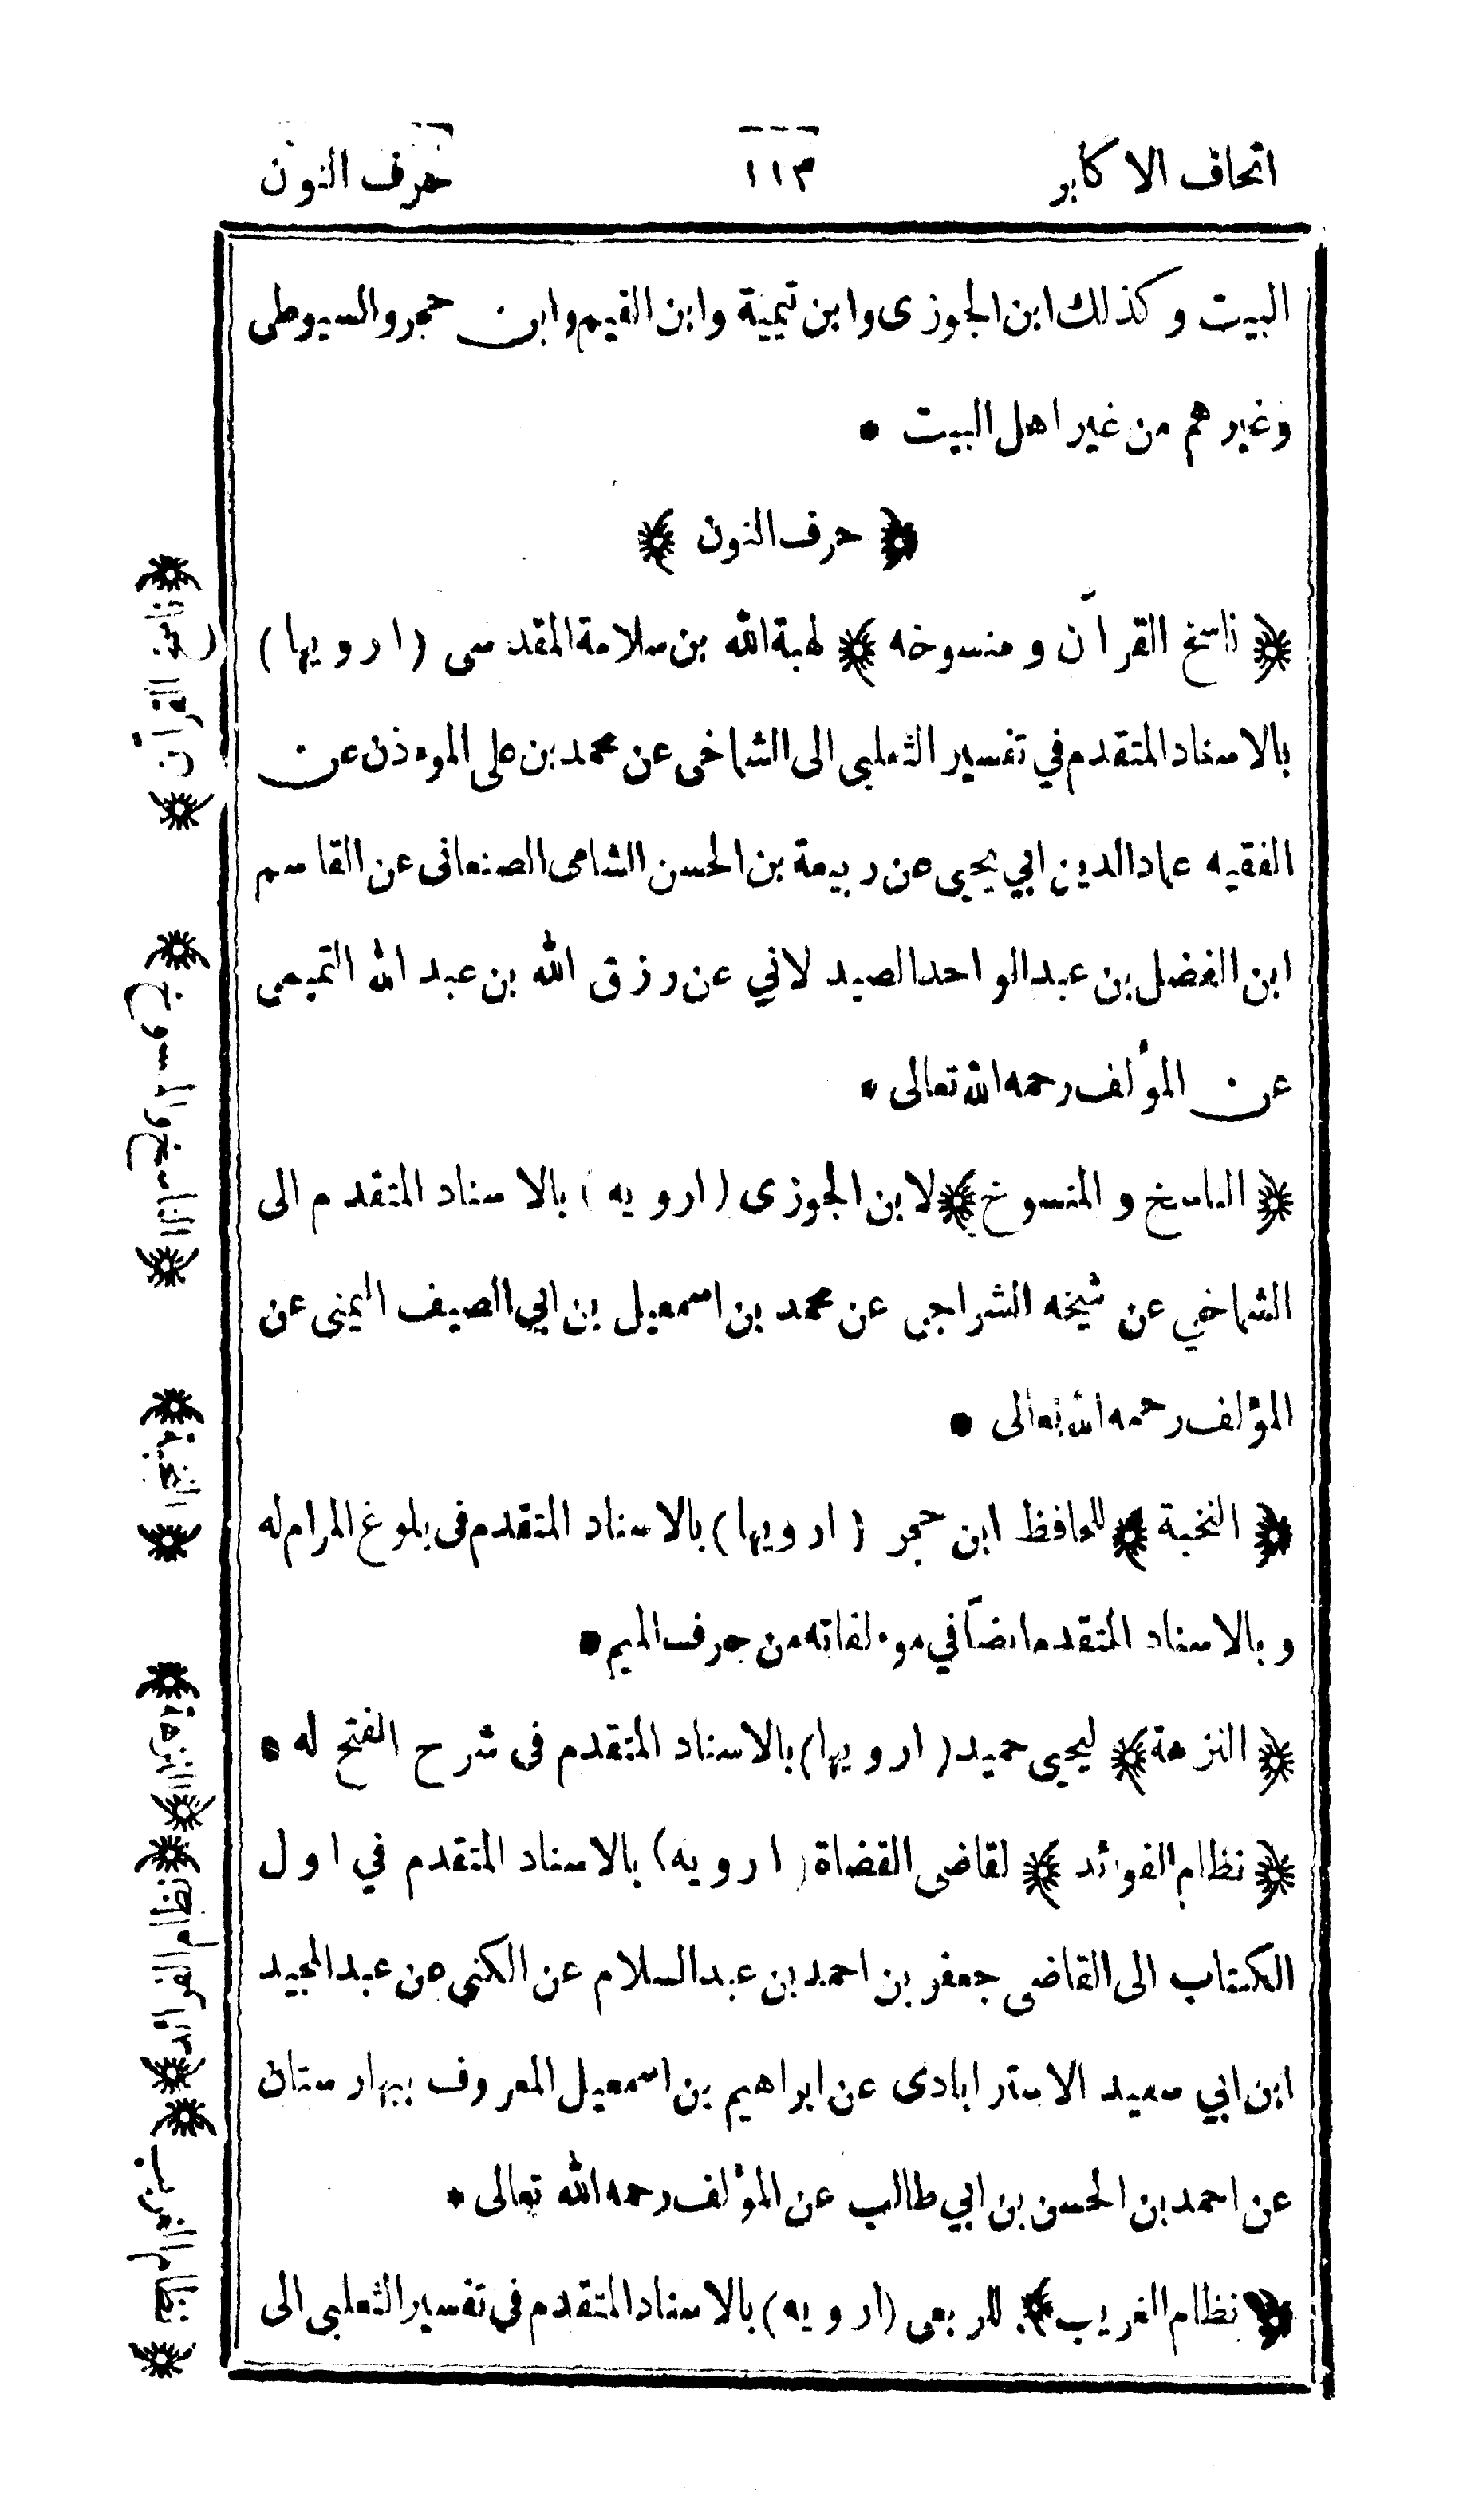 اتحاف الاكابر
١١٣
حرف النون
البيت وكذلك ابن الجوزى وابن تيمية وابن القيم وابن حجر والسيوطى
وغيرهم من غير اهل البيت •
﴿ حرف النون ﴾
﴿ ناسخ القرآن ومنسوخه ﴾ لهبة الله بن سلامة المقدسى (ارويها)
بالاسناد المتقدم في تفسير الثعلبى الى الشماخى عن محمد بن على الموءذن عن
الفقيه عماد الدين ابي يحيى عن ربيعة بن الحسن الشامى الصنعانى عن القاسم
ابن الفضل بن عبد الواحد الصيدلاني عن رزق الله بن عبد الله التميمى
عن المؤلف رحمه الله تعالى •
﴿ الناسخ والمنسوخ ﴾ لابن الجوزى (ارويه) بالاسناد المتقدم الى
الشماخي عن شيخه الشراجى عن محمد بن اسمعيل بن ابي الصيف اليمنى عن
المؤلف رحمه الله تعالى •
﴿ النخبة ﴾ للحافظ ابن حجر (ارويها) بالاسناد المتقدم فى بلوغ المرام له
وبالاسناد المتقدم ايضاً في موءلفاته من حرف الميم •
﴿ النزهة ﴾ ليحيى حميد (ارويها) بالاسناد المتقدم فى شرح الفتح له •
﴿ نظام الفوائد ﴾ لقاضى القضاة (ارويه) بالاسناد المتقدم في اول
الكتاب الى القاضى جعفر بن احمد بن عبد السلام عن الكنى عن عبد المجيد
ابن ابي سعيد الاستراباذى عن ابراهيم بن اسمعيل المعروف ببهارستان
عن احمد بن الحسن بن ابي طالب عن المؤلف رحمه الله تعالى •
﴿ نظام الغريب ﴾ للربعى (ارويه) بالاسناد المتقدم في تفسير الثعلبى الى
﴿ ناسخ القرآن ﴾
﴿ الناسخ والمنسوخ ﴾
﴿ النخبة ﴾
﴿ النزهة ﴾
﴿ نظام الفوائد ﴾
﴿ نظام الغريب ﴾